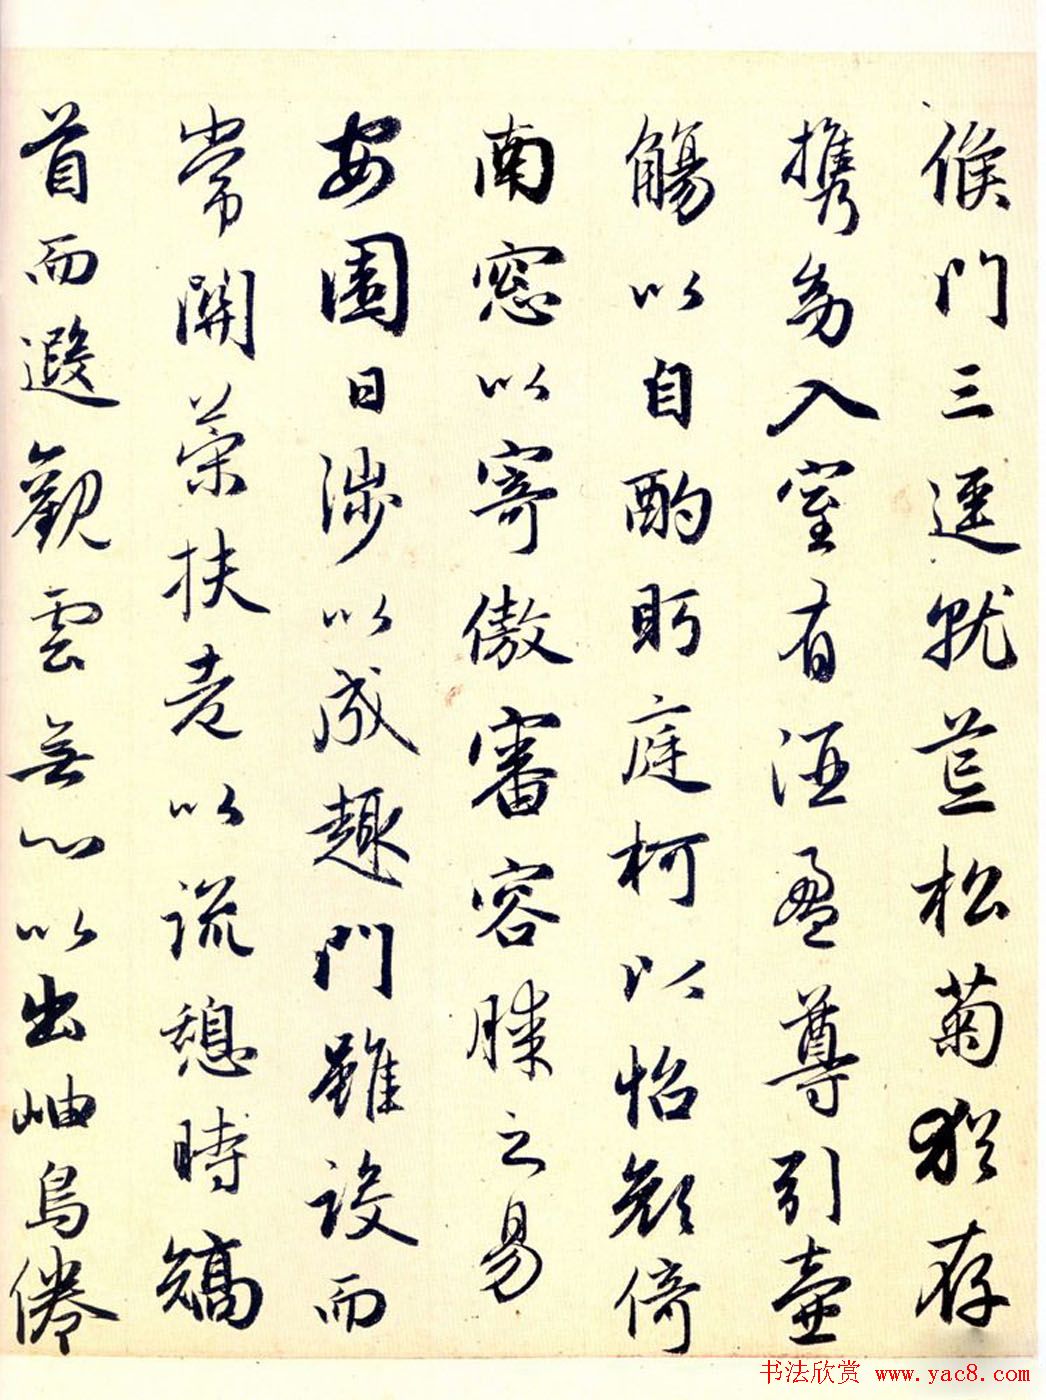 候門三逕就荒松菊猶存
攜幼入室有酒盈尊引壺
觴以自酌眄庭柯以怡顏倚
南窓以寄傲審容膝之易
安園日涉以成趣門雖設而
常關策扶老以流憩時矯
首而遐觀雲無心以出岫鳥倦
书法欣赏 www.yac8.com